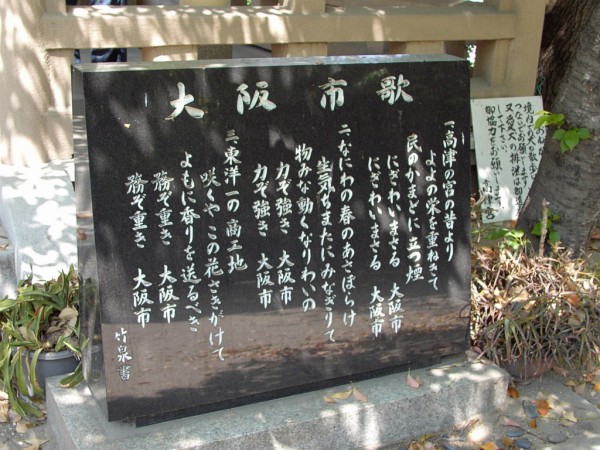 大阪市歌
一、高津の宮の昔より
よよの栄を重ねきて
民のかまどに立つ煙
にぎわいまさる 大阪市
にぎわいまさる 大阪市
二、なにわの春のあさぼらけ
生気ちまたにみなぎりて
物みな動くなりわいの
力ぞ強き 大阪市
力ぞ強き 大阪市
三、東洋一の商工地
咲くやこの花さきがけて
よもに香りを送るべき
務ぞ重き 大阪市
務ぞ重き 大阪市
竹泉書
つないでお願いします
又愛犬の排泄は
して下さい。
御協力を